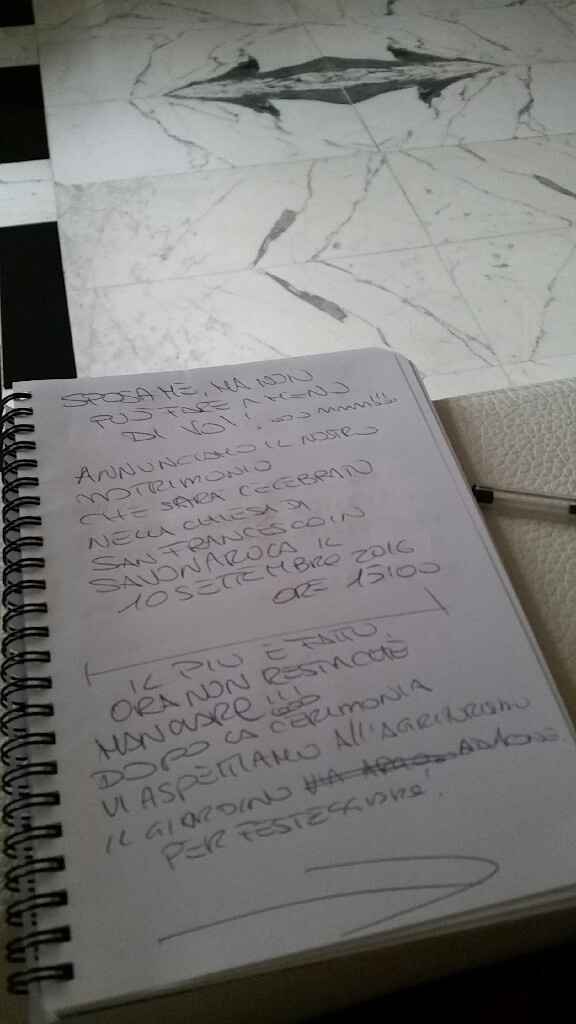 SPOSAME, MA NON
PUÒ FARE A MENO
DI VOI!
ANNUNCIAMO IL NOSTRO
MATRIMONIO
CHE SARÀ CELEBRATO
NELLA CHIESA DI
SAN FRANCESCO IN
SAVONAROLA IL
10 SETTEMBRE 2016
ORE 15:00
IL PIÙ È FATTO,
ORA NON RESTA CHE
MANGIARE!!!
DOPO LA CERIMONIA
VI ASPETTIAMO ALL'AGRITURISMO
IL GIARDINO
PER FESTEGGIARE!